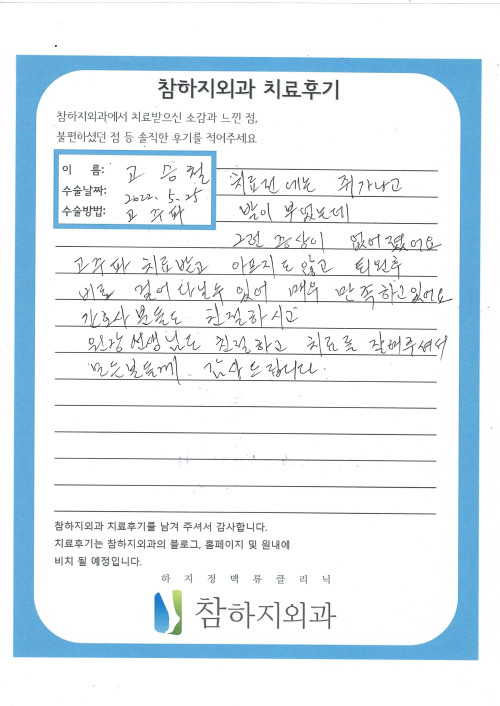 참하지외과 치료후기
참하지외과에서 치료받으신 소감과 느낀 점,
불편하셨던 점 등 솔직한 후기를 적어주세요
이 름: 고승철
수술날짜: 2022. 5. 25
수술방법: 고주파
치료전에는 쥐가나고
발이 부었는데
그런 증상이 없어졌어요
고주파 치료받고 아프지도 않고 퇴원후
바로 걸어 다닐수 있어 매우 만족하고있어요
간호사분들도 친절하시고
원장선생님도 친절하고 치료를 잘해주셔서
모든분들께 감사드립니다.
참하지외과 치료후기를 남겨 주셔서 감사합니다.
치료후기는 참하지외과의 블로그, 홈페이지 및 원내에
비치 될 예정입니다.
하지정맥류클리닉
참하지외과